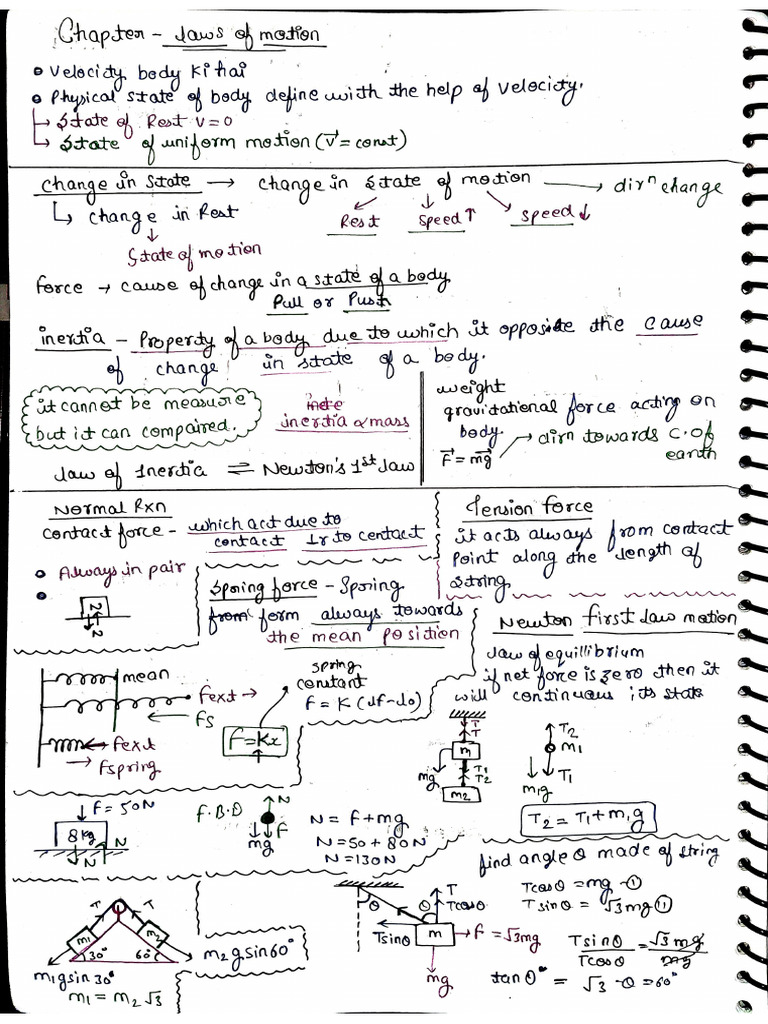 Chapter - Laws of motion
• Velocity body ki hai
• Physical state of body define with the help of velocity.
↳ State of Rest v=0
↳ State of uniform motion (v⃗ = const)
Change in State → change in state of motion → dirⁿ change
↳ change in Rest
Rest Speed↑ Speed↓
↓
State of motion
Force → cause of change in a state of a body
Pull or Push
inertia - Property of a body due to which it opposite the cause
of change in state of a body.
it cannot be measure
but it can compaired.
inertia ∝ mass
Law of Inertia ⇌ Newton's 1st Law
weight
gravitational force acting on
body.
→ dirn towards C.Of
earth
F⃗ = mg⃗
Normal Rxn
contact force - which act due to
contact ⊥r to contact
• Always in pair
•
2
2
Tension force
it acts always from contact
point along the length of
string
Spring force - Spring
from form always towards
the mean position
Newton first Law motion
Law of equillibrium
if net force is zero then it
will continuous its state
mean
Fext →
← Fs
← Fext
→ Fspring
spring
constant
F = K (df-do)
F = Kx
T
T
m
T1
T2
mg
m2
T2
m1
T1
m1g
T2 = T1 + m1g
F = 50N
8kg
N
N
F.B.D
N
F
mg
N = F + mg
N = 50 + 80N
N = 130N
find angle θ made of string
T T
m1 m2
30° 60°
m1gsin30°
m2gsin60°
m1 = m2√3
θ θ
T
Tcosθ
Tsinθ
m
F = √3mg
mg
Tcosθ = mg -①
Tsinθ = √3mg ⑪
Tsinθ = √3mg
Tcosθ mg
tanθ = √3 - θ = 60°